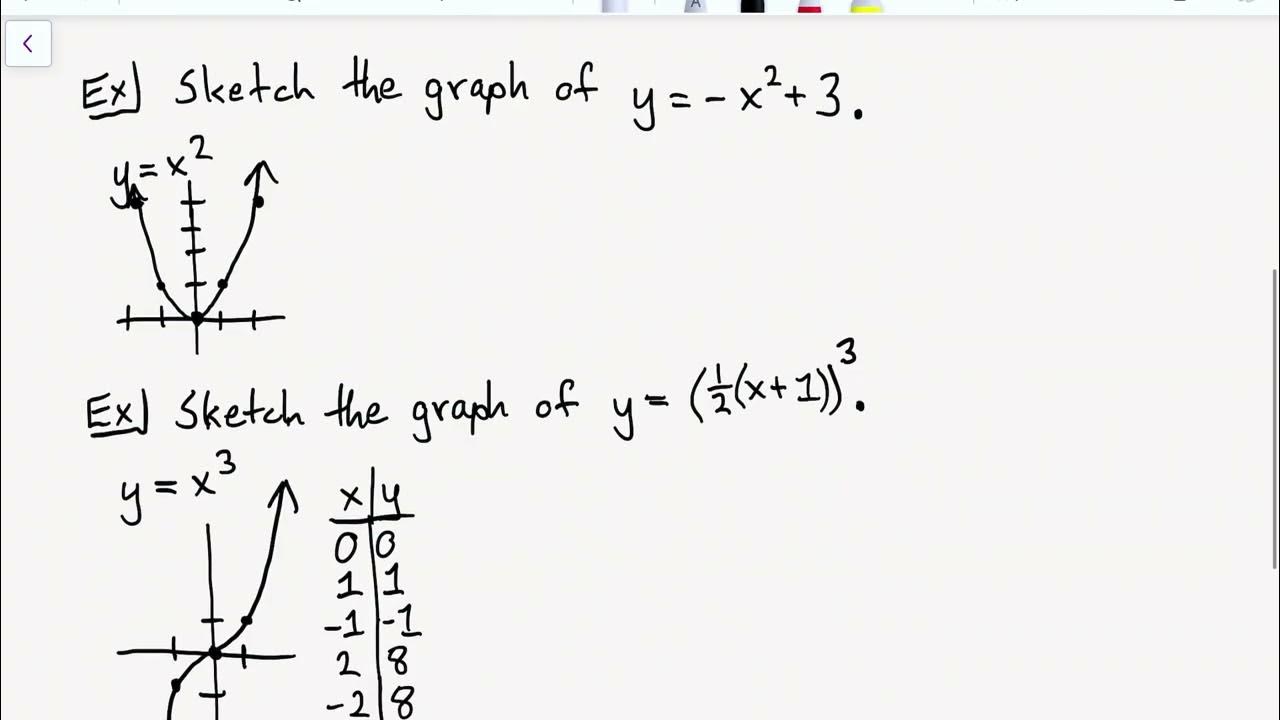 Ex] Sketch the graph of y = -x² + 3.
y = x²
Ex] Sketch the graph of y = (½(x+1))³.
y = x³
x | y
0 | 0
1 | 1
-1 | -1
2 | 8
-2 | 8